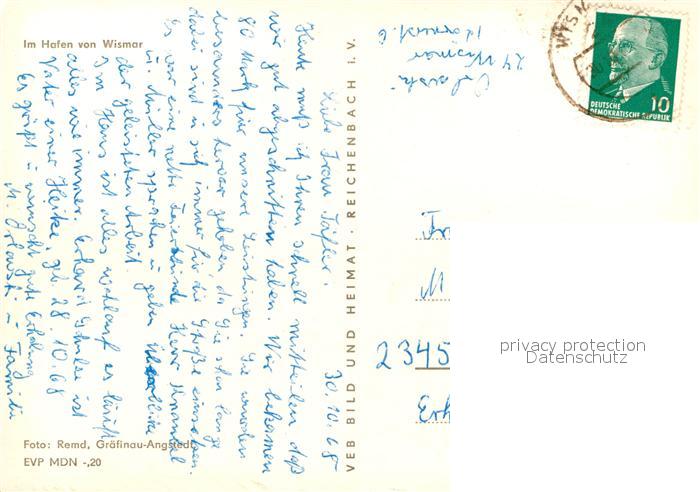 Im Hafen von Wismar
30.10.68
Liebe Frau Täfler,
Heute muß ich Ihnen schnell mitteilen daß
wir gut abgeschnitten haben. Wir bekamen
80 Mark für unsere Leistungen. Sie wurden
besonders hervor gehoben, da Sie schon lange
dabei sind u. sich immer für die Straße einsetzen.
Es war eine nette Feierstunde Herr
u. Müller sprachen u. gaben
der geleisteten Arbeit.
Im Haus ist alles wohlauf es läuft
alles wie immer. Erhard Schulze ist
Vater einer Heike, gb. 28.10.68
Es grüßt u. wünscht gute Erholung
M. Orlowski u. Familie
Foto: Remd, Gräfinau-Angstedt
EVP MDN -,20
VEB BILD UND HEIMAT · REICHENBACH I. V.
Orlowski
24 Wismar
WISM
DEUTSCHE
DEMOKRATISCHE REPUBLIK
10
Fr
M
2345
Erh
privacy protection
Datenschutz